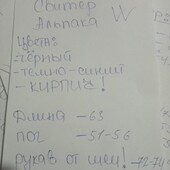 Свитер
Альпака W
Цвета:
-чёрный
-темно-синий
-КИРПИЧ!
Длина - 65
ПОГ - 51-56
рукав от шеи! -72-74